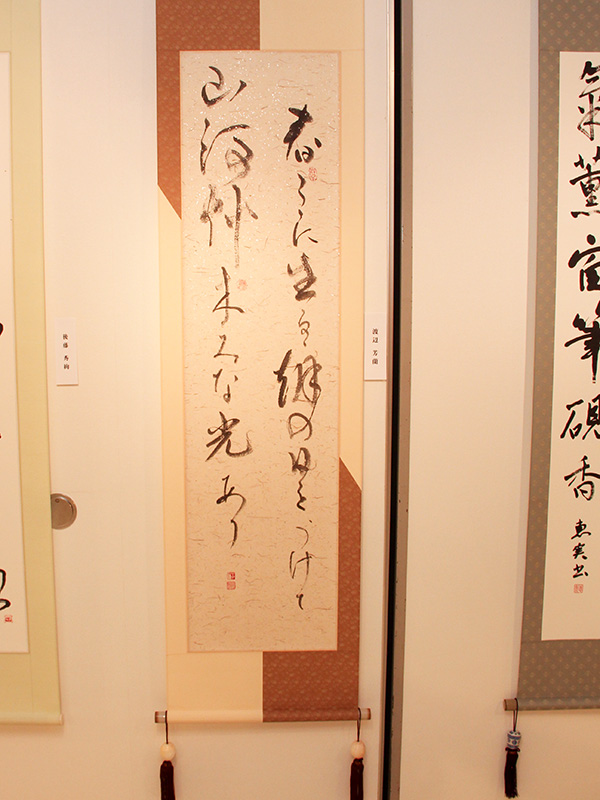 氣薫窗筆硯香
恵実書
渡辺 芳蘭
春こゝに生るゝ朝の日をうけて
山河艸木みな光あり
後藤 秀